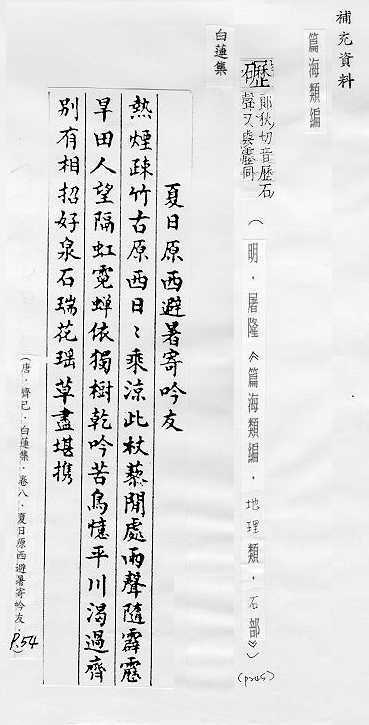 補充資料
篇海類編
礰
郎狄切音歷石
聲又與靂同
（明．屠隆《篇海類編．地理類．石部》）
白蓮集
夏日原西避暑寄吟友
熱煙疎竹古原西日〻乘涼此杖藜閒處雨聲隨霹靂
旱田人望隔虹霓蝉依獨樹乾吟苦鳥憶平川渴過齊
別有相招好泉石瑞花瑶草盡堪携
（唐．齊已．白蓮集．卷八．夏日原西避暑寄吟友．P.54）